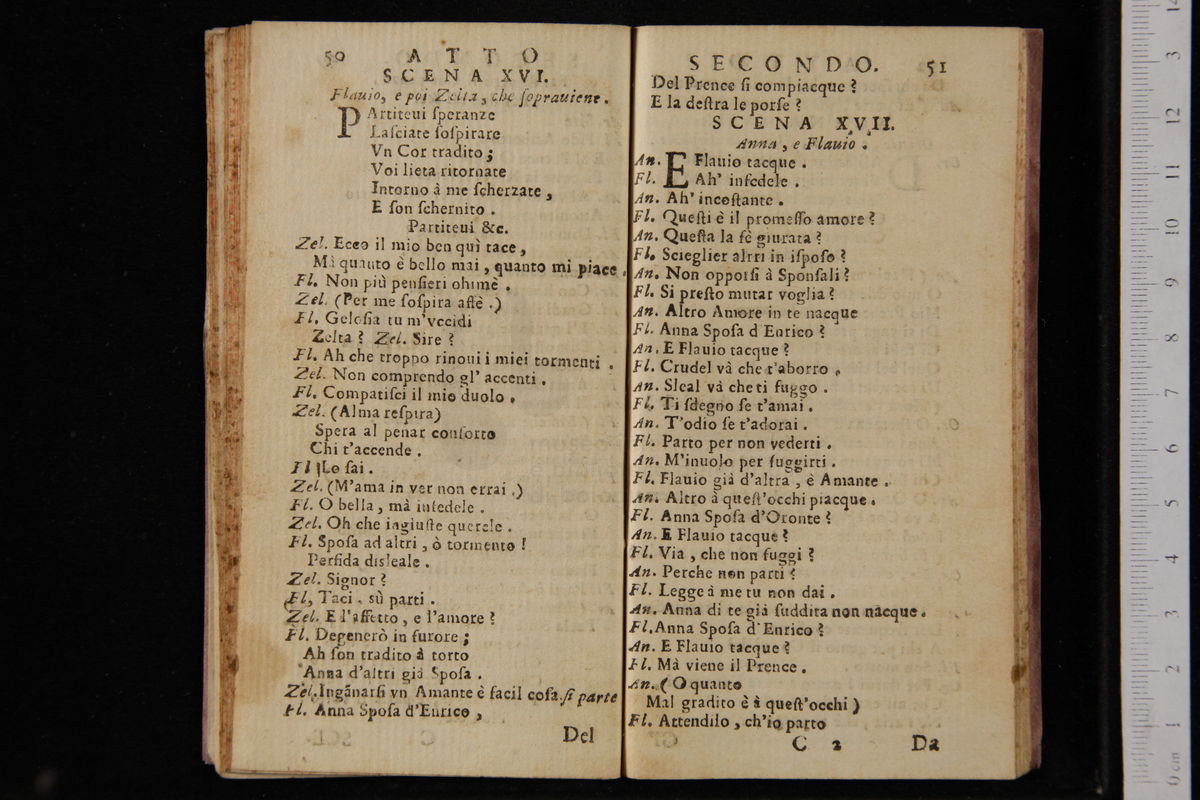 50 ATTO
SCENA XVI.
Flauio, e poi Zelta, che ſoprauiene.
PArtiteui ſperanze
Laſciate ſoſpirare
Vn Cor tradito;
Voi lieta ritornate
Intorno à me ſcherzate,
E ſon ſchernito.
Partiteui &c.
Zel. Ecco il mio ben quì tace,
Mà quanto è bello mai, quanto mi piace.
Fl. Non più penſieri ohimè.
Zel. (Per me ſoſpira affè.)
Fl. Geloſia tu m'vccidi
Zelta? Zel. Sire?
Fl. Ah che troppo rinoui i miei tormenti.
Zel. Non comprendo gl' accenti.
Fl. Compatiſci il mio duolo.
Zel. (Alma reſpira)
Spera al penar conforto
Chi t'accende.
Fl Lo ſai.
Zel. (M'ama in ver non errai.)
Fl. O bella, mà infedele.
Zel. Oh che ingiuſte querele.
Fl. Spoſa ad altri, ò tormento!
Perfida disleale.
Zel. Signor?
Fl, Taci, sù parti.
Zel. E l'affetto, e l'amore?
Fl. Degenerò in furore;
Ah ſon tradito à torto
Anna d'altri già Spoſa.
Zel. Ingãnarſi vn Amante è facil coſa. ſi parte
Fl. Anna Spoſa d'Enrico,
Del
SECONDO. 51
Del Prence ſi compiacque?
E la deſtra le porſe?
SCENA XVII.
Anna, e Flauio.
An. E Flauio tacque.
Fl. Ah' infedele.
An. Ah' incoſtante.
Fl. Queſti è il promeſſo amore?
An. Queſta la fè giurata?
Fl. Scieglier altri in iſpoſo?
An. Non opporſi à Sponſali?
Fl. Si preſto mutar voglia?
An. Altro Amore in te nacque
Fl. Anna Spoſa d'Enrico?
An. E Flauio tacque?
Fl. Crudel và che t'aborro.
An. Sleal và che ti fuggo.
Fl. Ti ſdegno ſe t'amai.
An. T'odio ſe t'adorai.
Fl. Parto per non vederti.
An. M'inuolo per fuggirti.
Fl. Flauio già d'altra, è Amante.
An. Altro à queſt'occhi piacque.
Fl. Anna Spoſa d'Oronte?
An. E Flauio tacque?
Fl. Via, che non fuggi?
An. Perche non parti?
Fl. Legge à me tu non dai.
An. Anna di te già ſuddita non nacque.
Fl. Anna Spoſa d'Enrico?
An. E Flauio tacque?
Fl. Mà viene il Prence.
An. (O quanto
Mal gradito è à queſt'occhi)
Fl. Attendilo, ch'io parto
C 2 Da
0 cm 1 2 3 4 5 6 7 8 9 10 11 12 13 14